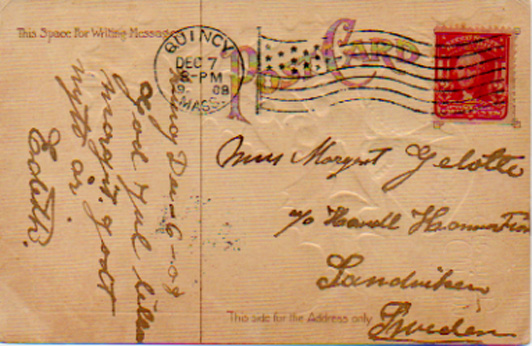 This Space For Writing Messages
POST CARD
QUINCY
DEC 7
8-PM
1908
MASS.
Dec-6-08
God Jul lilla
Margit. godt
nytt år.
Edith.
Miss Margret Gelotte
c/o
Sandviken
Sweden
This side for the Address only